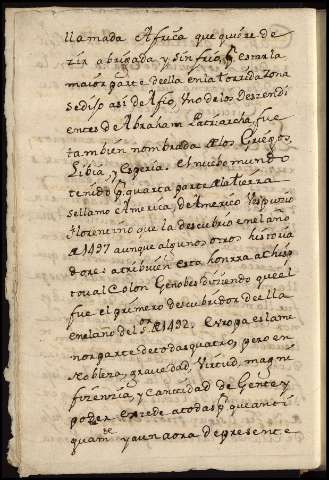 llamada Africa que quiere de
zir abrigada y sin frio, p estar la
maior parte de ella en la torrida zona
se dijo asi de Afro, Vno de los Deszendi
entes de Abraham Patriarcha, fue
tambien nombrada de los Griegos,
Libia, y Esperia. El nuebo mundo
tenido p quarta parte de la tierra
se llamo America, de Americo Vespuzio
florentino que la descubrio en el año
de 1497 aunque algunos otros historia
dores atribuien esta honrra a Chris
toual Colon Genobes diziendo que el
fue el primero descubridor de ella
en el año del Sr de 1492. Europa es la me
nor parte de todas quatro, pero en
Nobleza, gravedad, Virtud, magni
fizenzia, y cantidad de Gente y
poder exzede a todas p que anti
guam te y aun aora de presente